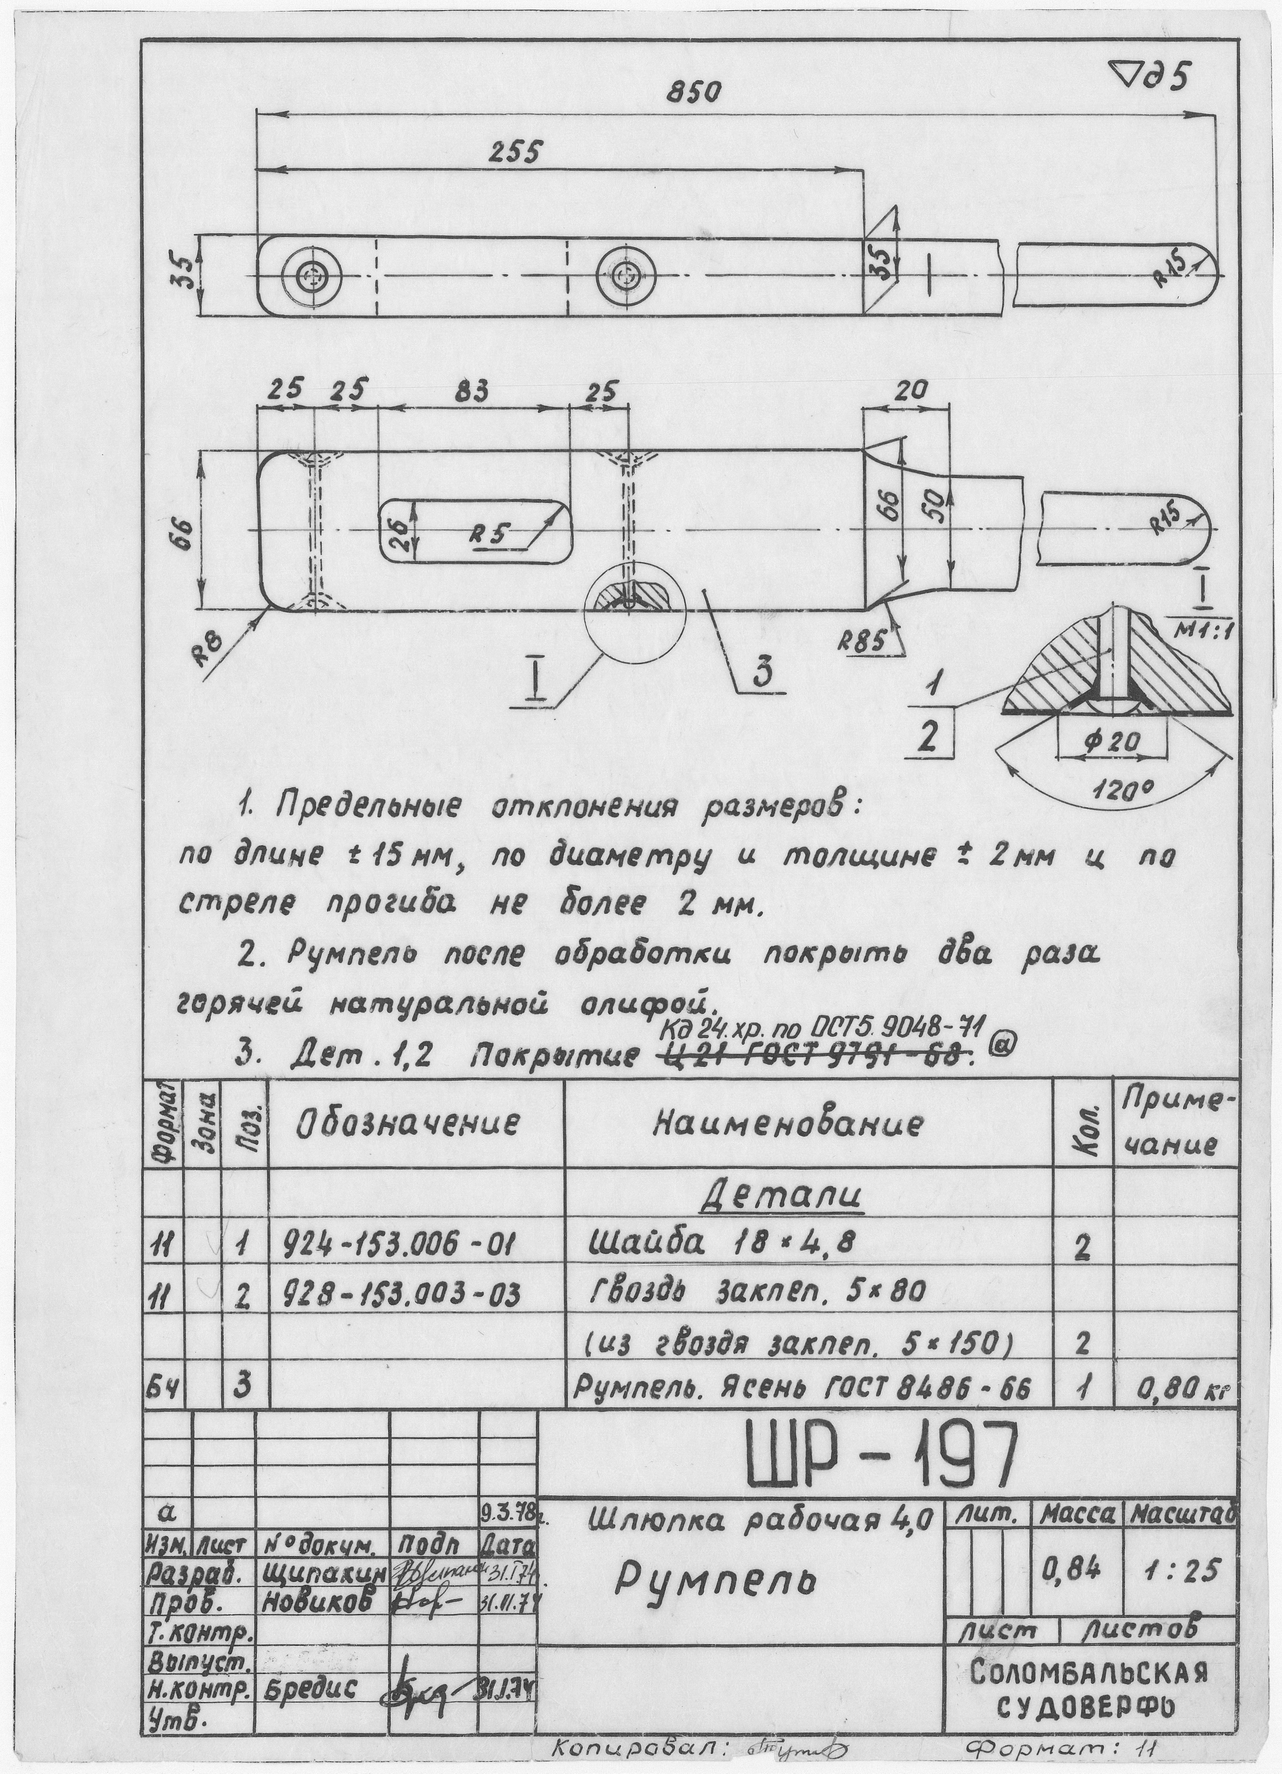 ▽д5
850
255
35
35
R15
25 25 83 25 20
66
26
R5
66
50
R15
R8
I
3
R85
I
М1:1
1
2
ф20
120°
1. Предельные отклонения размеров:
по длине ± 15 мм, по диаметру и толщине ± 2 мм и по
стреле прогиба не более 2 мм.
2. Румпель после обработки покрыть два раза
горячей натуральной олифой.
Кд 24.хр. по ОСТ5. 9048-71
3. Дет. 1,2 Покрытие Ц 21 ГОСТ 9791-68. а
Формат Зона Поз. Обозначение Наименование Кол. Приме-
чание
Детали
11 1 924-153.006-01 Шайба 18×4,8 2
11 2 928-153.003-03 Гвоздь заклеп. 5×80
(из гвоздя заклеп. 5×150) 2
БЧ 3 Румпель. Ясень ГОСТ 8486-66 1 0,80 кг
ШР-197
а 9.3.78г.
Изм. Лист N° докум. Подп Дата
Разраб. Щипакин
Пров. Новиков
Т. контр.
Выпуст.
Н. контр. Бредис 31.1.74
Утв.
Шлюпка рабочая 4,0
Румпель
Лит. Масса Масштаб
0,84 1:25
Лист Листов
СОЛОМБАЛЬСКАЯ
СУДОВЕРФЬ
Копировал:
Формат: 11